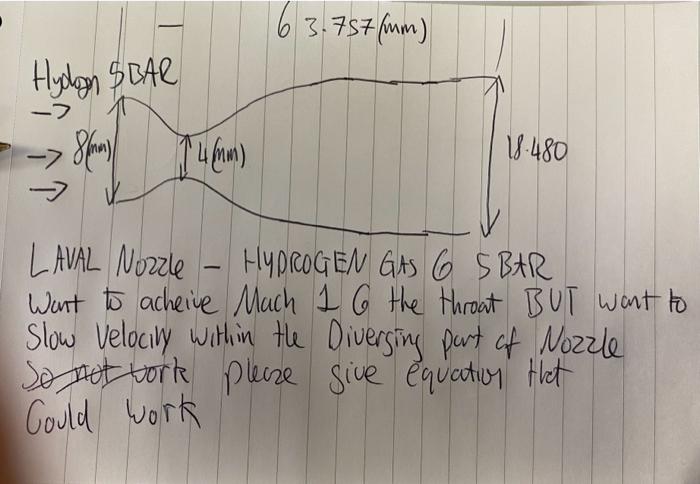 63.757(mm)
Hydogn 5BAR
8(mm)
4(mm)
18.480
LAVAL Nozzle - HYDROGEN GAS @ 5 BAR
Want to acheive Mach 1 @ the throat BUT want to
Slow Velocity within the Diverging part of Nozzle
So not work please give equation that
Could work